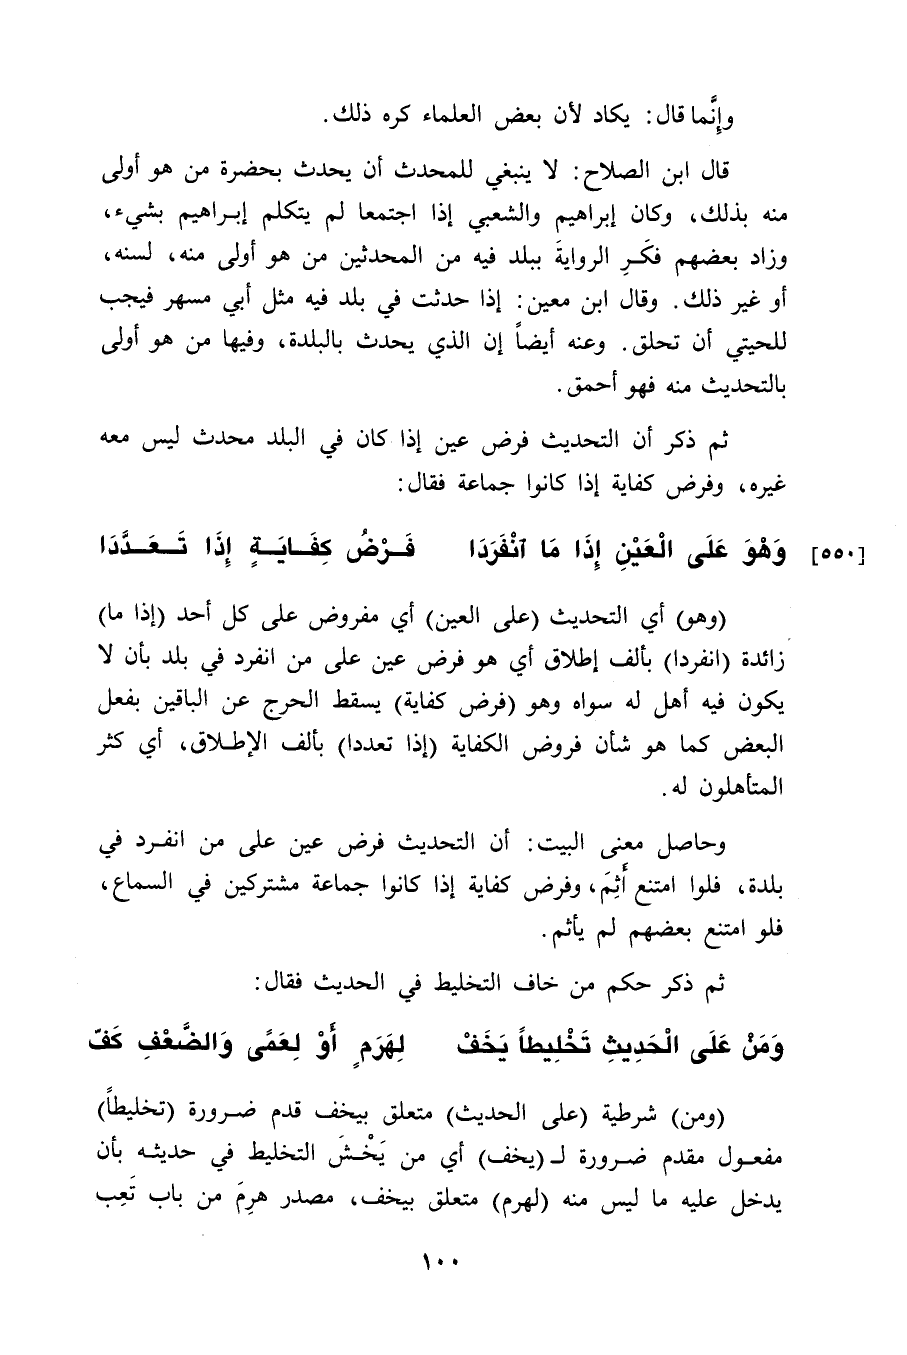 وإنَّما قال: يكاد لأن بعض العلماء كره ذلك.
قال ابن الصلاح: لا ينبغي للمحدث أن يحدث بحضرة من هو أولى
منه بذلك، وكان إبراهيم والشعبي إذا اجتمعا لم يتكلم إبراهيم بشيء،
وزاد بعضهم فكَرِ الروايةَ ببلد فيه من المحدثين من هو أولى منه، لسنه،
أو غير ذلك. وقال ابن معين: إذا حدثت في بلد فيه مثل أبي مسهر فيجب
للحيتي أن تحلق. وعنه أيضاً إن الذي يحدث بالبلدة، وفيها من هو أولى
بالتحديث منه فهو أحمق.
ثم ذكر أن التحديث فرض عين إذا كان في البلد محدث ليس معه
غيره، وفرض كفاية إذا كانوا جماعة فقال:
[٥٥٠] وَهْوَ عَلَى الْعَيْنِ إِذَا مَا آنْفَرَدَا فَـرْضُ كِفَـايَـةٍ إِذَا تَـعَـدَّدَا
(وهو) أي التحديث (على العين) أي مفروض على كل أحد (إذا ما)
زائدة (انفردا) بألف إطلاق أي هو فرض عين على من انفرد في بلد بأن لا
يكون فيه أهل له سواه وهو (فرض كفاية) يسقط الحرج عن الباقين بفعل
البعض كما هو شأن فروض الكفاية (إذا تعددا) بألف الإطلاق، أي كثر
المتأهلون له.
وحاصل معنى البيت: أن التحديث فرض عين على من انفرد في
بلدة، فلوا امتنع أَثِمَ، وفرض كفاية إذا كانوا جماعة مشتركين في السماع،
فلو امتنع بعضهم لم يأثم.
ثم ذكر حكم من خاف التخليط في الحديث فقال:
وَمَنْ عَلَى الْحَدِيثِ تَخْلِيطاً يَخَفْ لِهَرَمٍ أَوْ لِعَمًى وَالضَّعْفِ كَفّ
(ومن) شرطية (على الحديث) متعلق بيخف قدم ضرورة (تخليطاً)
مفعول مقدم ضرورة لـ (يخف) أي من يَخْشَ التخليط في حديثه بأن
يدخل عليه ما ليس منه (لهرم) متعلق بيخف، مصدر هرِمَ من باب تَعِب
١٠٠